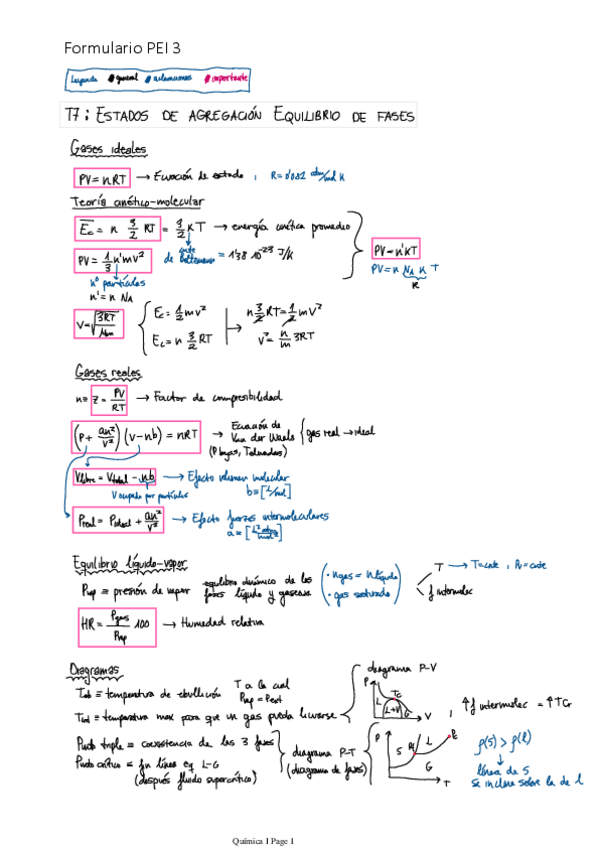 Formulario PEI 3
Leyenda general aclaraciones importante
T7: ESTADOS DE AGREGACIÓN EQUILIBRIO DE FASES
Gases ideales
PV = nRT → Ecuación de estado, R = 0'082 atm/mol K
Teoría cinético-molecular
Ec = n 3/2 RT = 3/2 kT → energía cinética promedio
PV = 1/3 n'mv² cte de Boltzmann = 1'38 10⁻²³ J/K
PV = n'kT
nº partículas
n' = n NA
PV = n NA k T
R
V = √3RT/Mm
Ec = 1/2 mv²
Ec = n 3/2 RT
n 3/2 RT = 1/2 mv²
v² = n/m 3RT
Gases reales
z = PV/RT → Factor de compresibilidad
(P + an²/v²) (v - nb) = nRT → Ecuación de Van der Waals { gas real → ideal
Vlibre = Vtotal - nb → Efecto volumen molecular
V ocupado por partículas b = [L/mol]
Preal = Pideal + an²/v² → Efecto fuerzas intermoleculares
Equilibrio líquido-vapor
Pvap ≡ presión de vapor equilibrio dinámico de las fases líquido y gaseosa
· n gas = n líquido
· gas saturado
T → T=cte, Pv=cte
f intermolec
HR = Pgas/Pvap 100 → Humedad relativa
Diagramas
Teb ≡ temperatura de ebullición T a la cual Pvap = Pext
≡ temperatura max para que un gas pueda licuarse
diagrama P-V
P Tc L L+V G V
↑f intermolec = ↑TCr
Punto triple = coexistencia de las 3 fases
Punto crítico = fin línea eq L-G
(después fluido supercrítico)
diagrama P-T
(diagrama de fases)
P S L G T
ρ(S) > ρ(l)
línea de S
se inclina sobre la de l
Química I Page 1